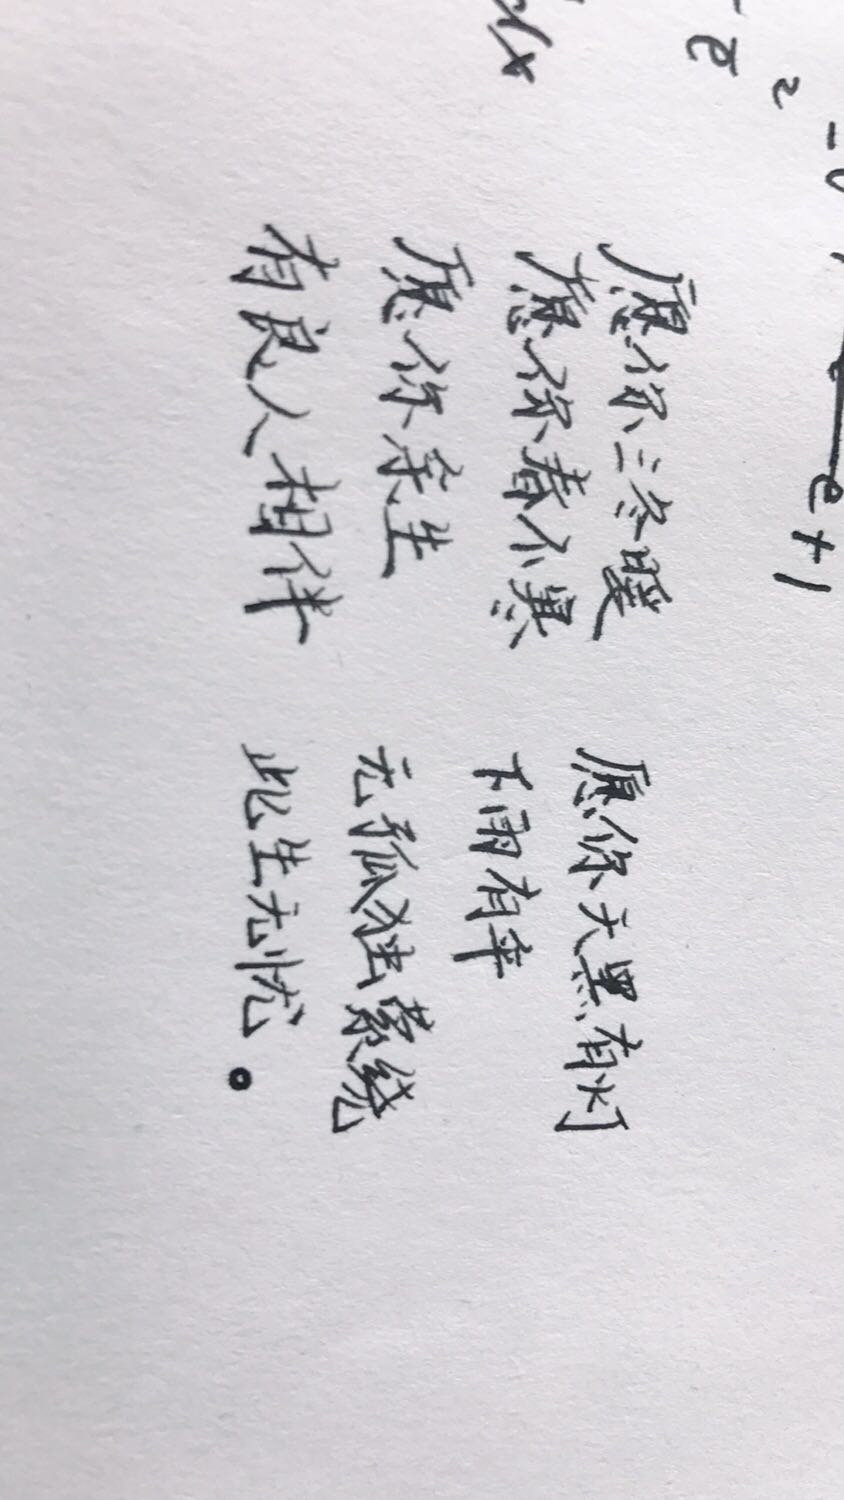 e+1
愿你三冬暖 愿你天黑有灯
愿你春不寒 下雨有伞
愿你余生 无孤独萦绕
有良人相伴 此生无忧。